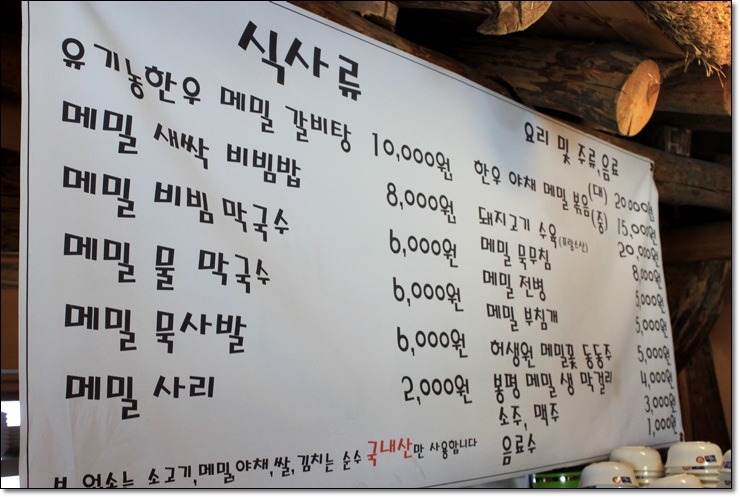 식사류
유기농한우 메밀 갈비탕 10,000원
메밀 새싹 비빔밥 8,000원
메밀 비빔 막국수 6,000원
메밀 물 막국수 6,000원
메밀 묵사발 6,000원
메밀 사리 2,000원
요리 및 주류,음료
한우 야채 메밀 볶음 (대) 20,000원
(중) 15,000원
돼지고기 수육(프랑스산) 20,000원
메밀 묵무침 8,000원
메밀 전병 5,000원
메밀 부침개 5,000원
허생원 메밀꽃 동동주 5,000원
봉평 메밀 생 막걸리 4,000원
소주, 맥주 3,000원
음료수 1,000원
업소는 소고기,메밀,야채,쌀,김치는 순수 국내산만 사용합니다